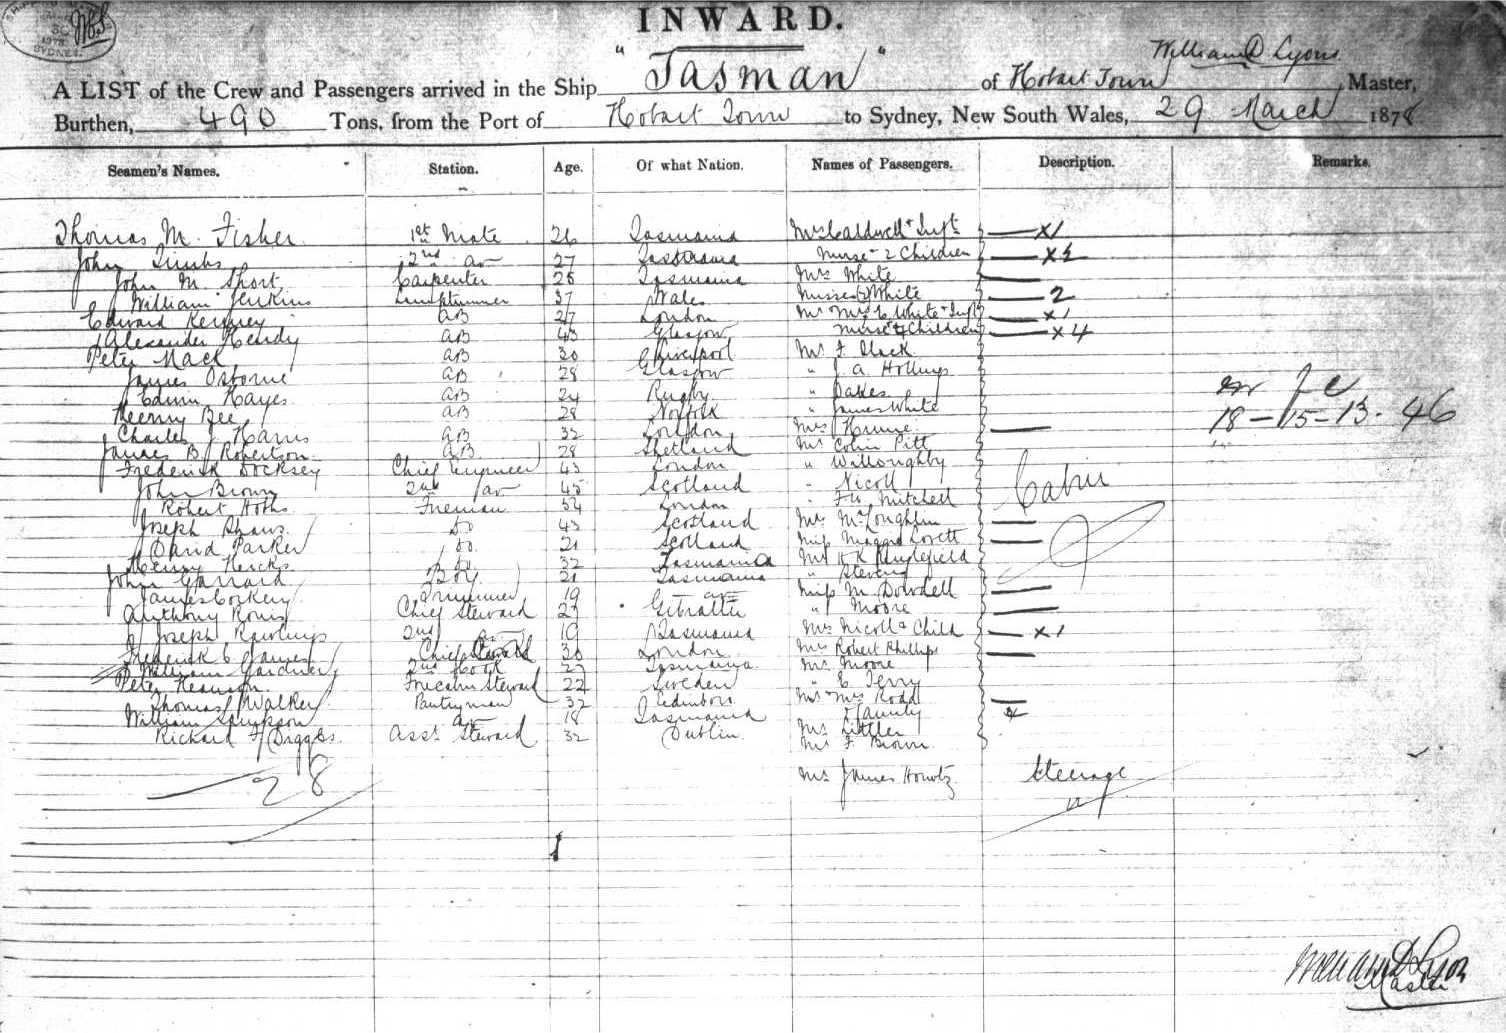 SYDNEY.
INWARD.
William D Lyons
A LIST of the Crew and Passengers arrived in the Ship "Tasman" of Hobart Town, Master,
Burthen, 490 Tons, from the Port of Hobart Town to Sydney, New South Wales, 29 March 1878
Seamen's Names. Station. Age. Of what Nation. Names of Passengers. Description. Remarks.
Thomas M. Fisher 1st Mate 26 Tasmania Mrs Caldwell + Inft x1
John 2nd do 27 Tasmania Nurse 2 Children
John M Short Carpenter Tasmania Mrs White
William Jenkins 37 Wales Misses White 2
Edward AB 27 London Mr Mrs C White + Inft x1
Alexander Hendy AB 43 Glasgow Nurse 4 Children x4
Peter Mack AB 30 Liverpool Mr F Mack
James Osborne AB 28 Glasgow " J. A. Hollings
Edwin Hayes AB 24 Rugby " Oakes
Henry Bee AB 28 Norfolk " James White
18-15-13. 46
Charles J Harris AB 32 London Mrs
James B Robertson AB 28 Shetland Mr Colin Pitt
Frederick Chief Engineer 43 London " Willoughby
John Brown 2nd do 45 Scotland " Nicoll
Cabin
Robert Fireman 34 London " Mitchell
Joseph Shaw Do 43 Scotland Mrs McLoughlin
David Parker Do 21 Scotland Miss Lovett
Henry 32 Tasmania Mr
John Garrard Boy 21 Tasmania " Stevens
James Corkery Trimmer 19 do Miss M Dowdell
Anthony Chief Steward 27 " Moore
Joseph Rawlings 2nd do 19 Tasmania Mrs Nicoll & Child x1
Frederick C James Chief 30 London Mrs Robert Phillips
William Gardner 2nd Cook 27 Tasmania Mr Moore
Peter Steward 22 Sweden " C Terry
Thomas Walker Pantryman 37 Mr Mrs Rodd
William do 18 Tasmania & family 4
Richard F Diggs Asst Steward 32 Dublin Mr Littler
Mr F Brown
28
Mr James Steerage
William D Lyons
Master